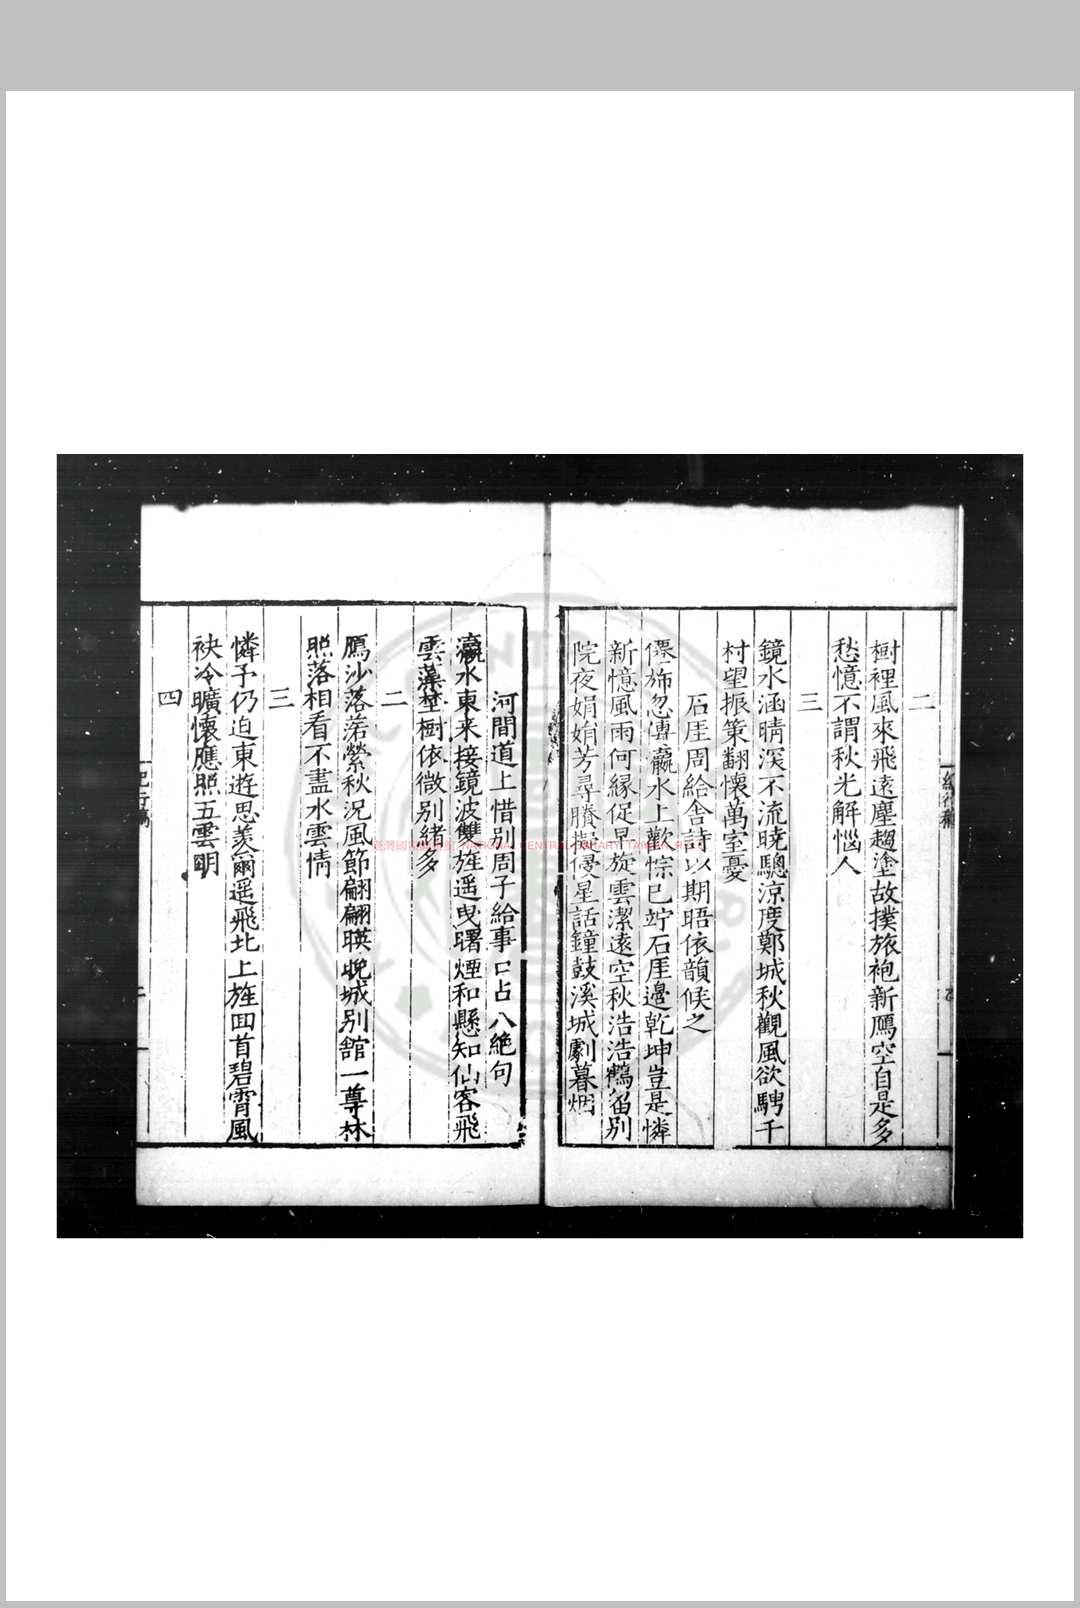 二
樹裡風來飛遠塵趨塗故撲旅袍新鴈空自是多
愁憶不謂秋光解惱人
三
鏡水涵晴深不流曉驄涼度鄭城秋觀風欲騁千
村望振策翻懷萬室憂
石厓周給舍詩以期晤依韻候之
僊斾忽傳瀛水上歡悰已竚石厓邊乾坤豈是憐
新憶風雨何縁促早旋雲潔遠空秋浩浩鶴留別
院夜娟娟芳尋賸擬侵星話鐘鼓溪城劇暮烟
河間道上惜別周子給事口占八絶句
瀛水東来接鏡波雙旌遥曳曙煙和懸知仙客飛
雲藻埜樹依微別緒多
二
鴈沙落落縈秋況風節翩翩暎晚城別館一尊林
照落相看不盡水雲情
三
憐予仍迫東遊思羡爾遥飛北上旌回首碧霄風
袂冷曠懷應照五雲明
四